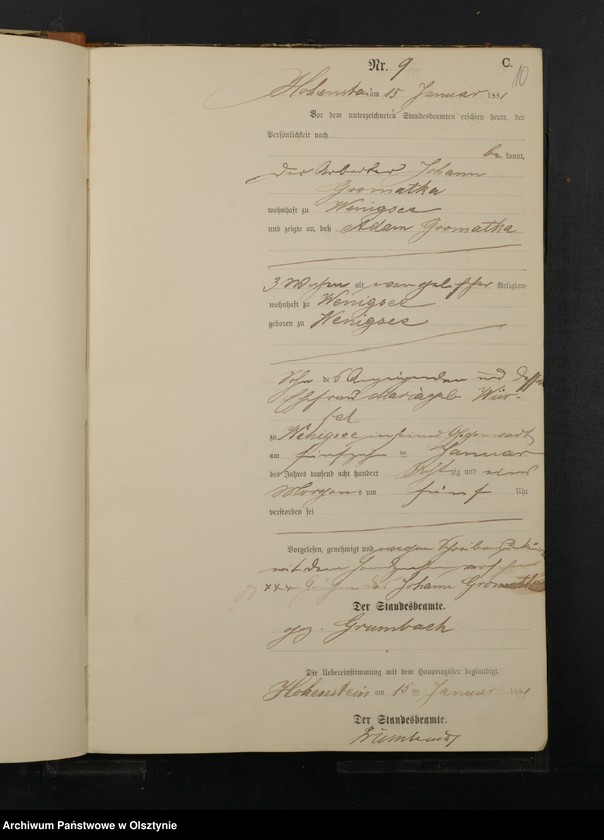 Nr. 9
C.
10
Hohenstein am 15 Januar 1881
Vor dem unterzeichneten Standesbeamten erschien heute, der
Persönlichkeit nach
be kannt,
der Arbeiter Johann
Gromatka
wohnhaft zu Wenigsee
und zeigte an, daß Adam Gromatka
3 Wochen alt, evangelischer Religion,
wohnhaft zu Wenigsee
geboren zu Wenigsee
Sohn des Anzeigenden und dessen
Ehefrau Marie geb. Wür-
fel
zu Wenigsee in seiner Gegenwart
am fünfzehn ten Januar
des Jahres tausend acht hundert Achtzig und eins
Morgens um fünf Uhr
verstorben sei
Vorgelesen, genehmigt und wegen
mit dem Handzeichen versehen
xxx Johann Gromatka
Der Standesbeamte.
gez. Grumbach
Die Uebereinstimmung mit dem Hauptregister beglaubigt.
Hohenstein am 15 ten Januar 1881
Der Standesbeamte.
Grumbach
Archiwum Państwowe w Olsztynie